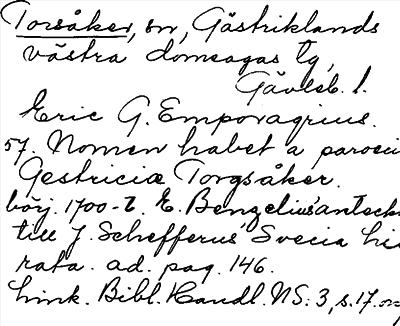 Torsåker, sn, Gästriklands
västra domsagas tg,
Gävleb. l.
Eric G. Emporagrius.
57. Nomen habet a paroeci
Gestriciæ Torgsåker.
börj. 1700-t. E. Benzelius' anteck
till J. Schefferus' Svecia li
rata. ad. pag. 146.
Link. Bibl. Handl. NS: 3, s. 17.